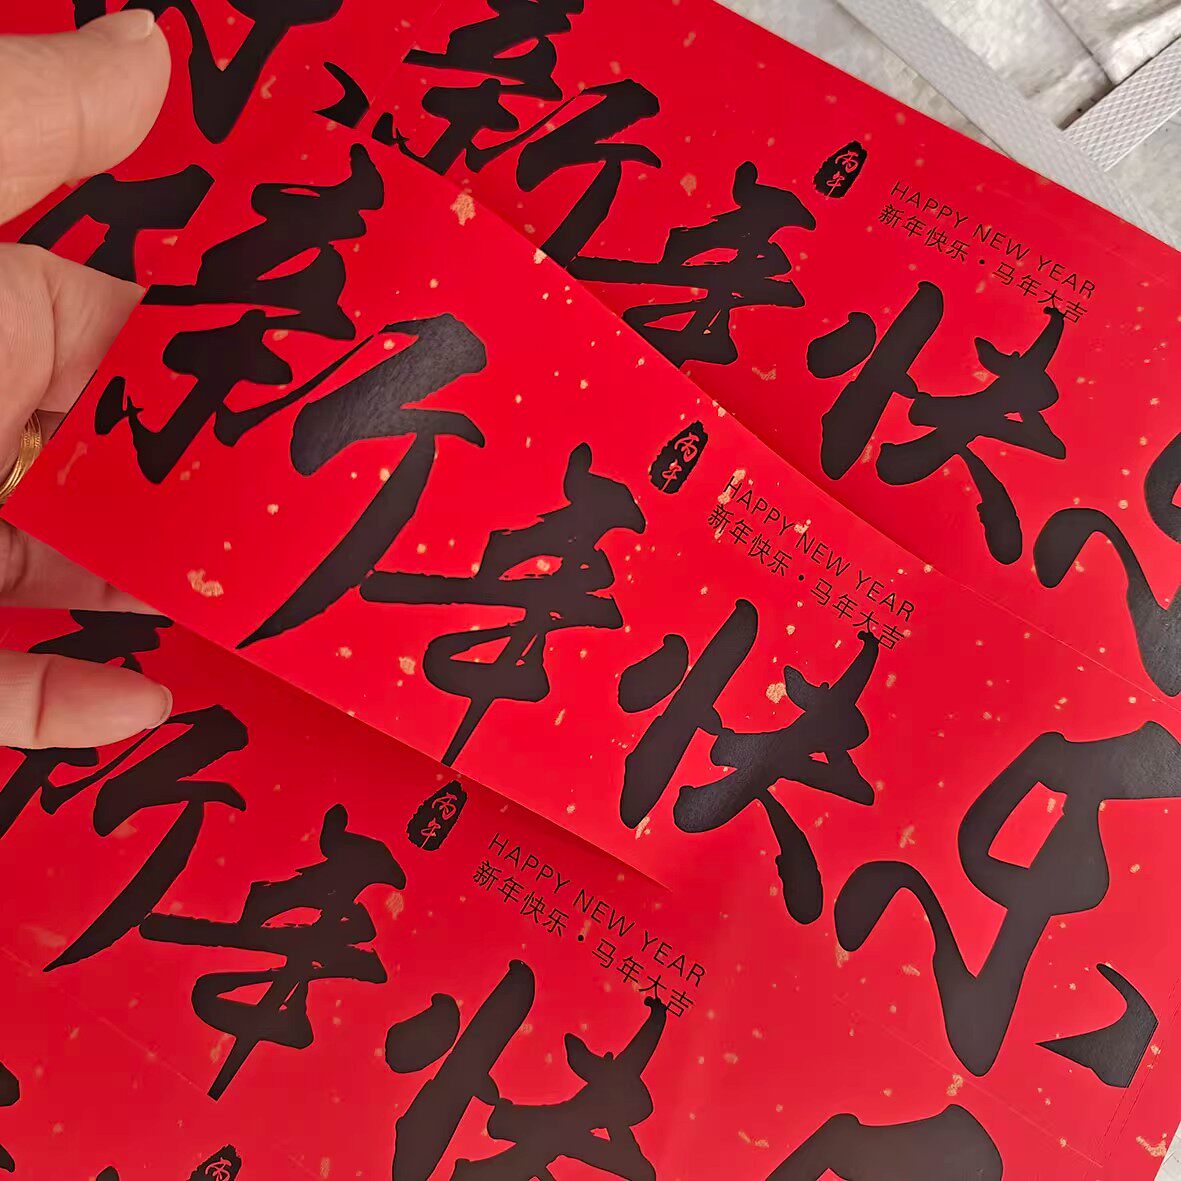 新年快乐
丙午
HAPPY NEW YEAR
新年快乐·马年大吉
新年快乐
丙午
HAPPY NEW YEAR
新年快乐·马年大吉
新年快乐
丙午
HAPPY NEW YEAR
新年快乐·马年大吉
丙